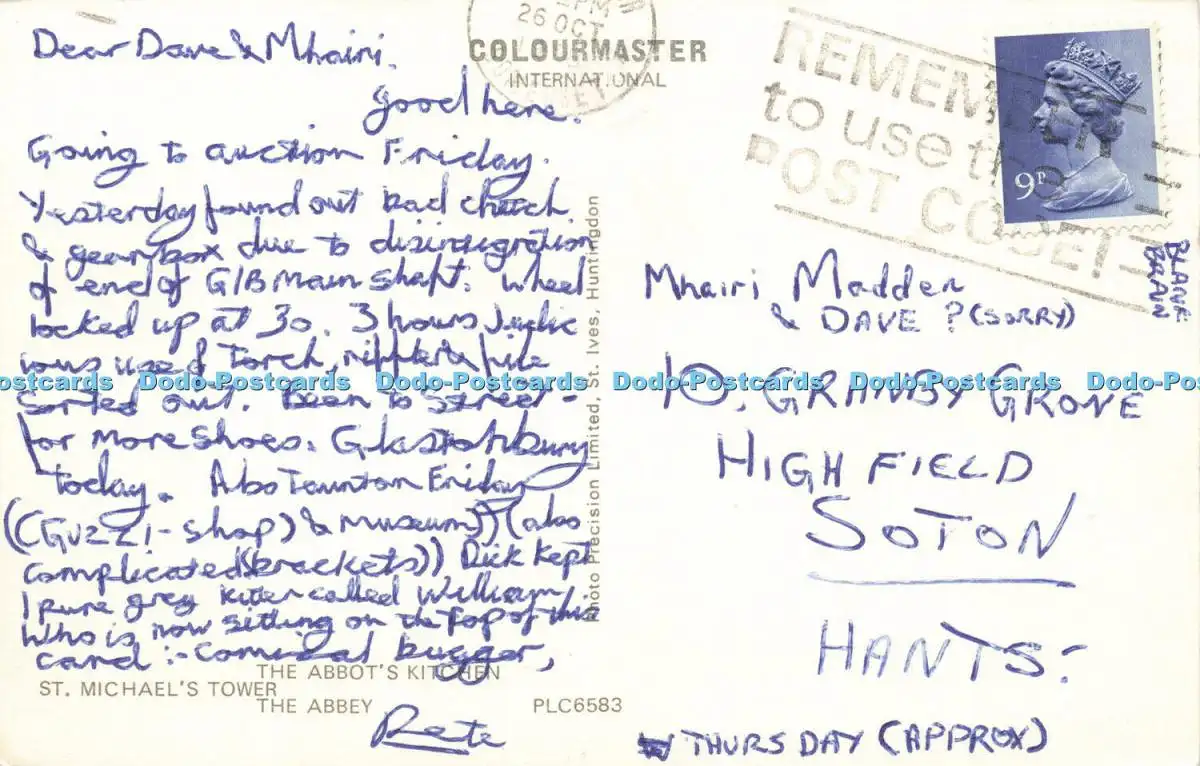 Dear Dave & Mhairi.
good here.
Going to auction Friday.
Yesterday found out bad clutch
& gearbox due to disintegration
of end of G/B Main shaft. Wheel
locked up at 30. 3 hours Judic
ious use of Torch, riffler & file
sorted out. Been to Street -
for More Shoes. Glastonbury
today. Also Taunton Friday
((GUZZI-shop) & museum)) (also
complicated (brackets)) Dick kept
1 pure grey kitten called William
Who is now sitting on the top of this
card :- comical bugger,
Pete
COLOURMASTER
INTERNATIONAL
26 OCT
REMEMBER
to use the
POST CODE!
9P
Photo Precision Limited, St. Ives, Huntingdon
Mhairi Madden
& DAVE ? (SORRY)
10, GRANBY GROVE
HIGHFIELD
SOTON
HANTS:
THURSDAY (APPROX)
THE ABBOT'S KITCHEN
ST. MICHAEL'S TOWER
THE ABBEY
PLC6583
Dodo-Postcards Dodo-Postcards Dodo-Postcards Dodo-Postcards Dodo-Postcards Dodo-Postcards